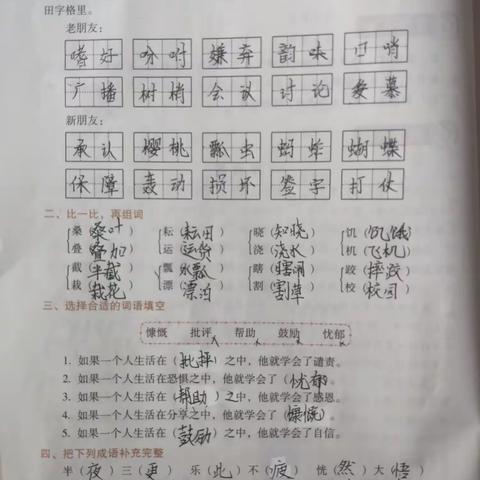 田字格里。
老朋友：
嗜好 吩咐 嫌弃 韵味 口哨
广播 树梢 会议 讨论 爱慕
新朋友：
承认 樱桃 瓢虫 蚂蚱 蝴蝶
保障 轰动 损坏 签字 打仗
二、比一比，再组词
桑（桑叶） 耘（耘田） 晓（知晓） 饥（饥饿）
叠（叠加） 运（运货） 浇（浇水） 机（飞机）
截（半截） 瓢（水瓢） 瞎（瞎闹） 跤（摔跤）
栽（栽花） 漂（漂泊） 割（割草） 校（校园）
三、选择合适的词语填空
慷慨 批评 帮助 鼓励 忧郁
1. 如果一个人生活在（批评）之中，他就学会了谴责。
2. 如果一个人生活在恐惧之中，他就学会了（忧郁）。
3. 如果一个人生活在（帮助）之中，他就学会了感恩。
4. 如果一个人生活在分享之中，他就学会了（慷慨）。
5. 如果一个人生活在（鼓励）之中，他就学会了自信。
四、把下列成语补充完整
半（夜）三（更） 乐（此）不（疲） 恍（然）大（悟）